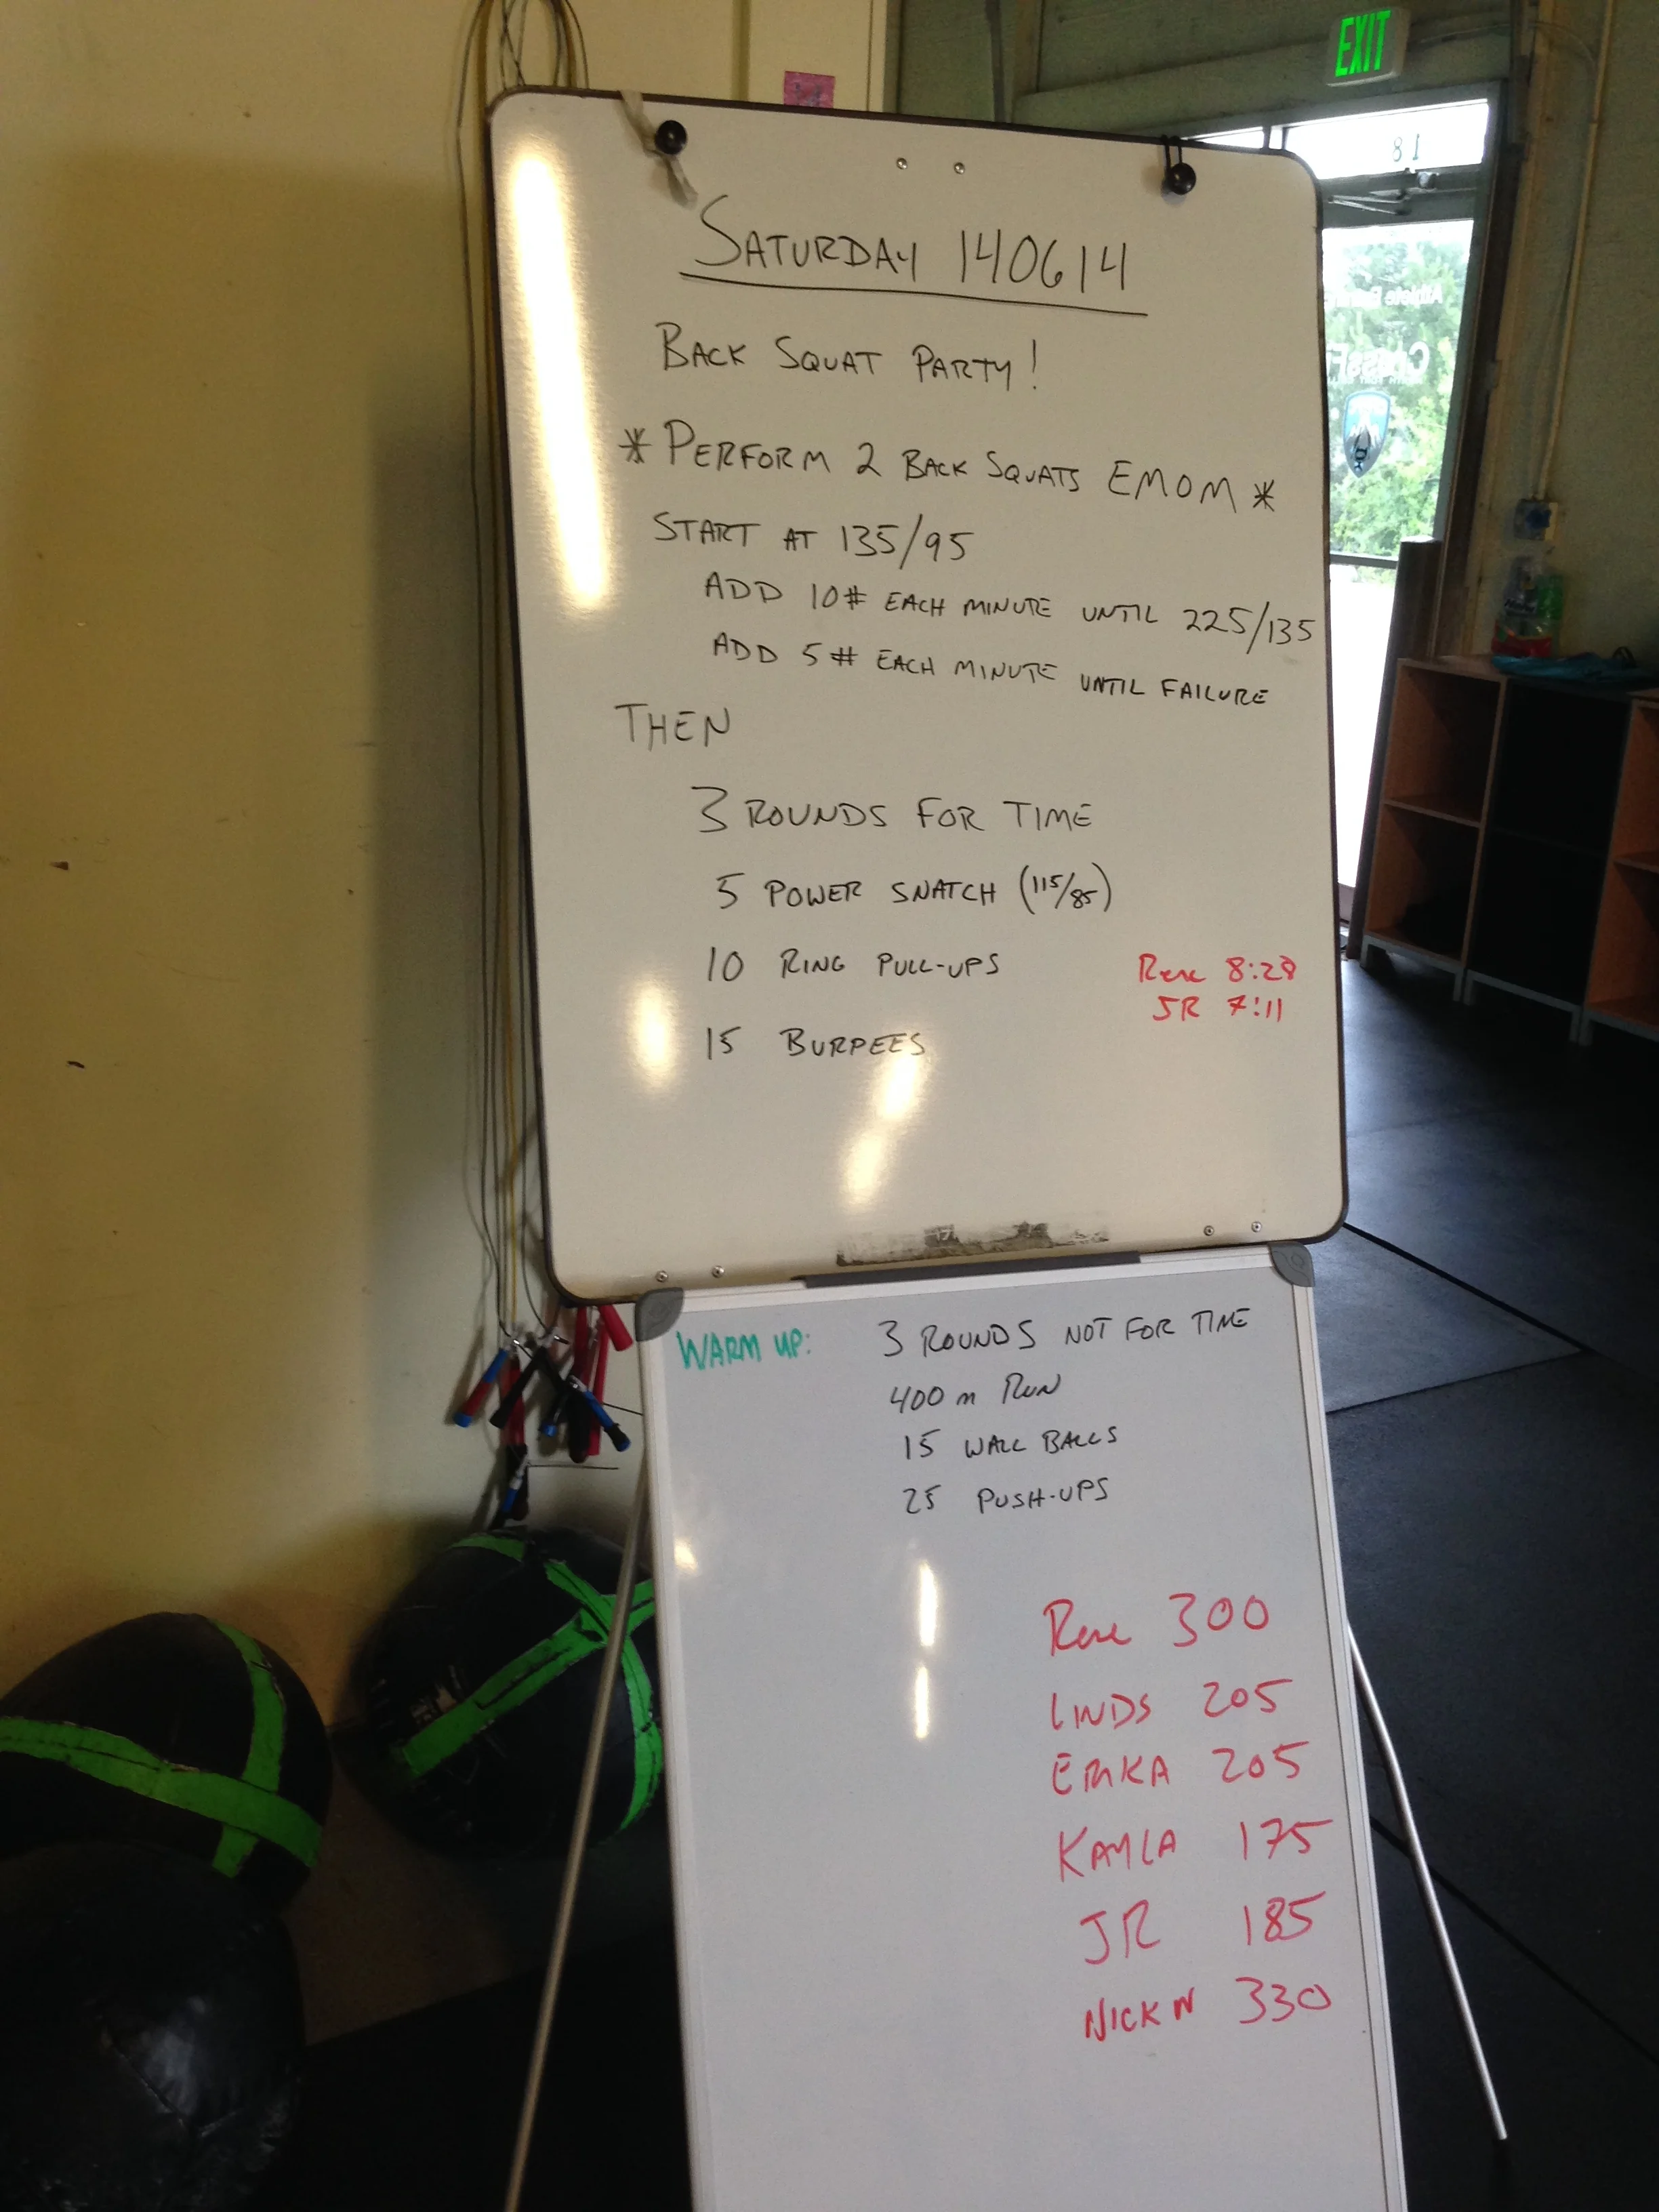 EXIT
18
SATURDAY 140614
BACK SQUAT PARTY!
* PERFORM 2 BACK SQUATS EMOM *
START AT 135/95
ADD 10# EACH MINUTE UNTIL 225/135
ADD 5# EACH MINUTE UNTIL FAILURE
THEN
3 ROUNDS FOR TIME
5 POWER SNATCH (115/85)
10 RING PULL-UPS
15 BURPEES
Rene 8:28
JR 7:11
WARM UP: 3 ROUNDS NOT FOR TIME
400 m RUN
15 WALL BALLS
25 PUSH-UPS
Rene 300
LINDS 205
ERIKA 205
KAYLA 175
JR 185
NICK W 330